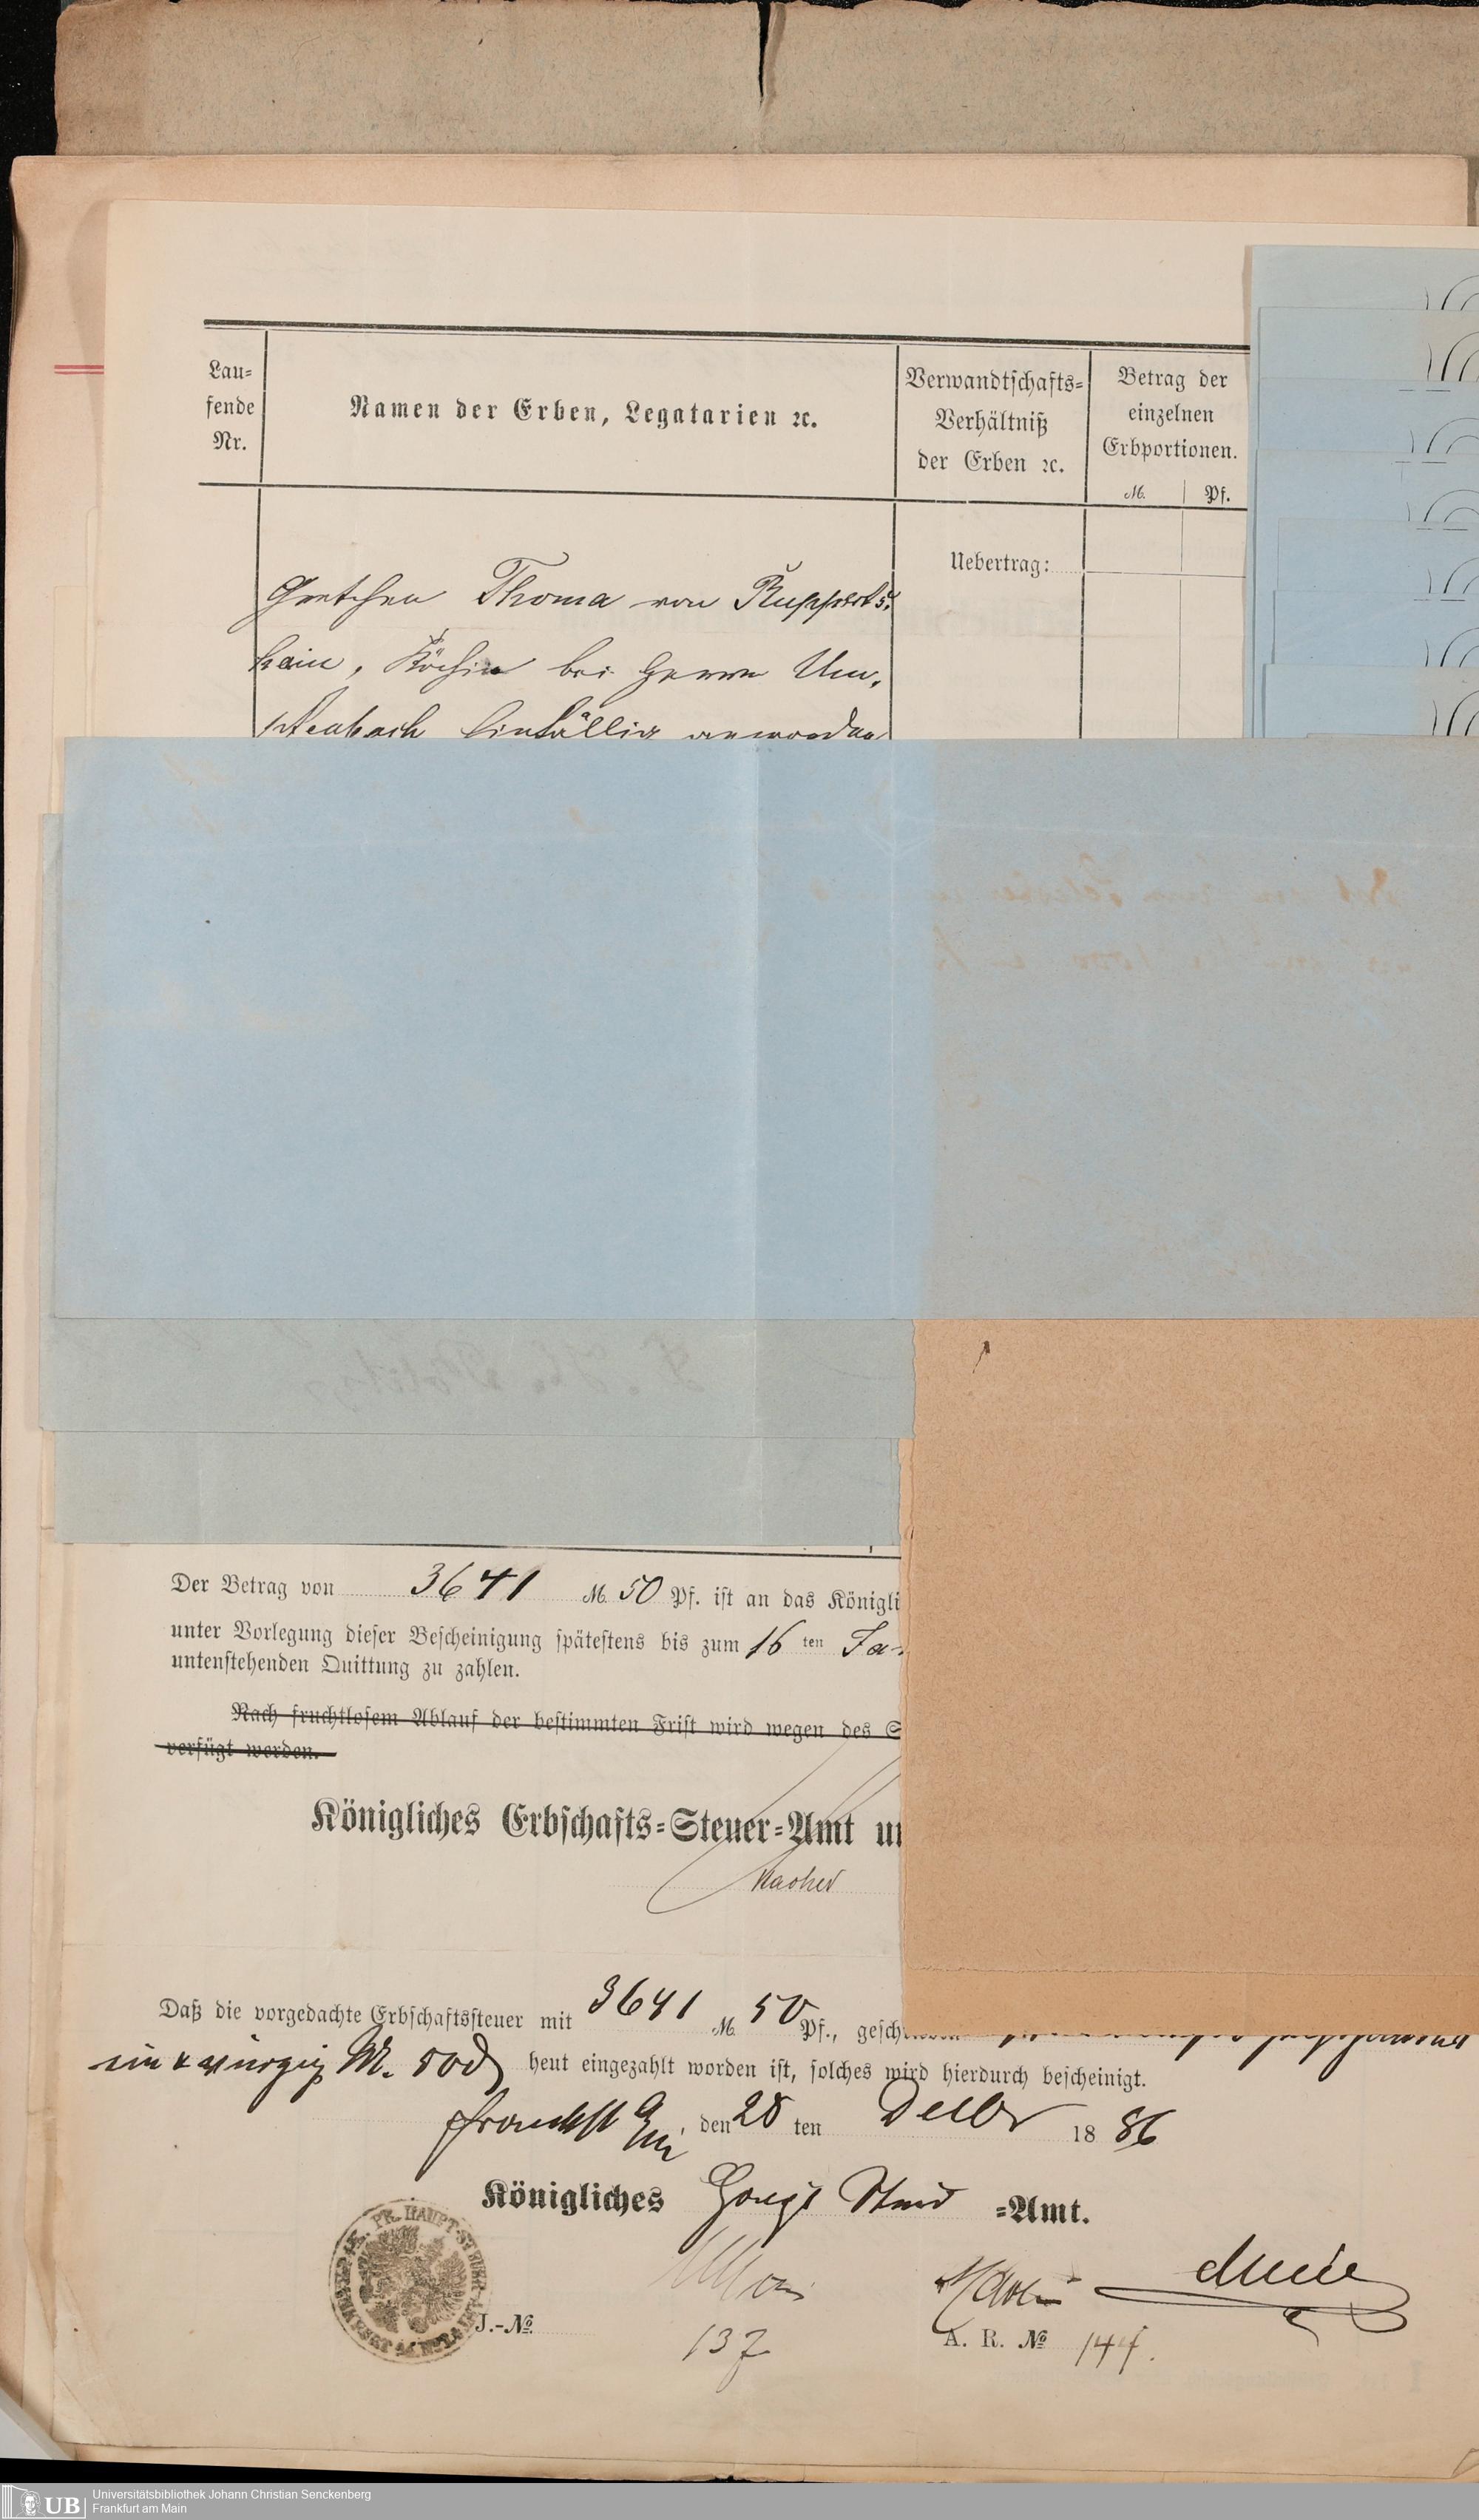 Lau=
fende
Nr.
Namen der Erben, Legatarien ꝛc.
Verwandtschafts=
Verhältniß
der Erben ꝛc.
Betrag der
einzelnen
Erbportionen.
M. Pf.
Uebertrag:
Gretchen Thoma von Rupperts=
hain, Köchin bei Herrn Um=
pfenbach hinfällig geworden
Der Betrag von 3641 M. 50 Pf. ist an das Königli
unter Vorlegung dieser Bescheinigung spätestens bis zum 16 ten Ja
untenstehenden Quittung zu zahlen.
Nach fruchtlosem Ablauf der bestimmten Frist wird wegen des S
verfügt werden.
Königliches Erbschafts=Steuer=Amt u
Daß die vorgedachte Erbschaftssteuer mit 3641 M. 50 Pf., gesch
ein & vierzig M. 50 d heut eingezahlt worden ist, solches wird hierdurch bescheinigt.
den 28 ten Decbr 1886
Königliches Haupt Steuer =Amt.
PR. HAUPT-STEUER-AMT
J.-№
137
A. R. №
UB
Universitätsbibliothek Johann Christian Senckenberg
Frankfurt am Main